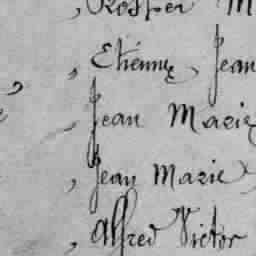 , Rosper M
, Etienne, Jean
, Jean Marie
, Jean Marie
, Alfred Victor